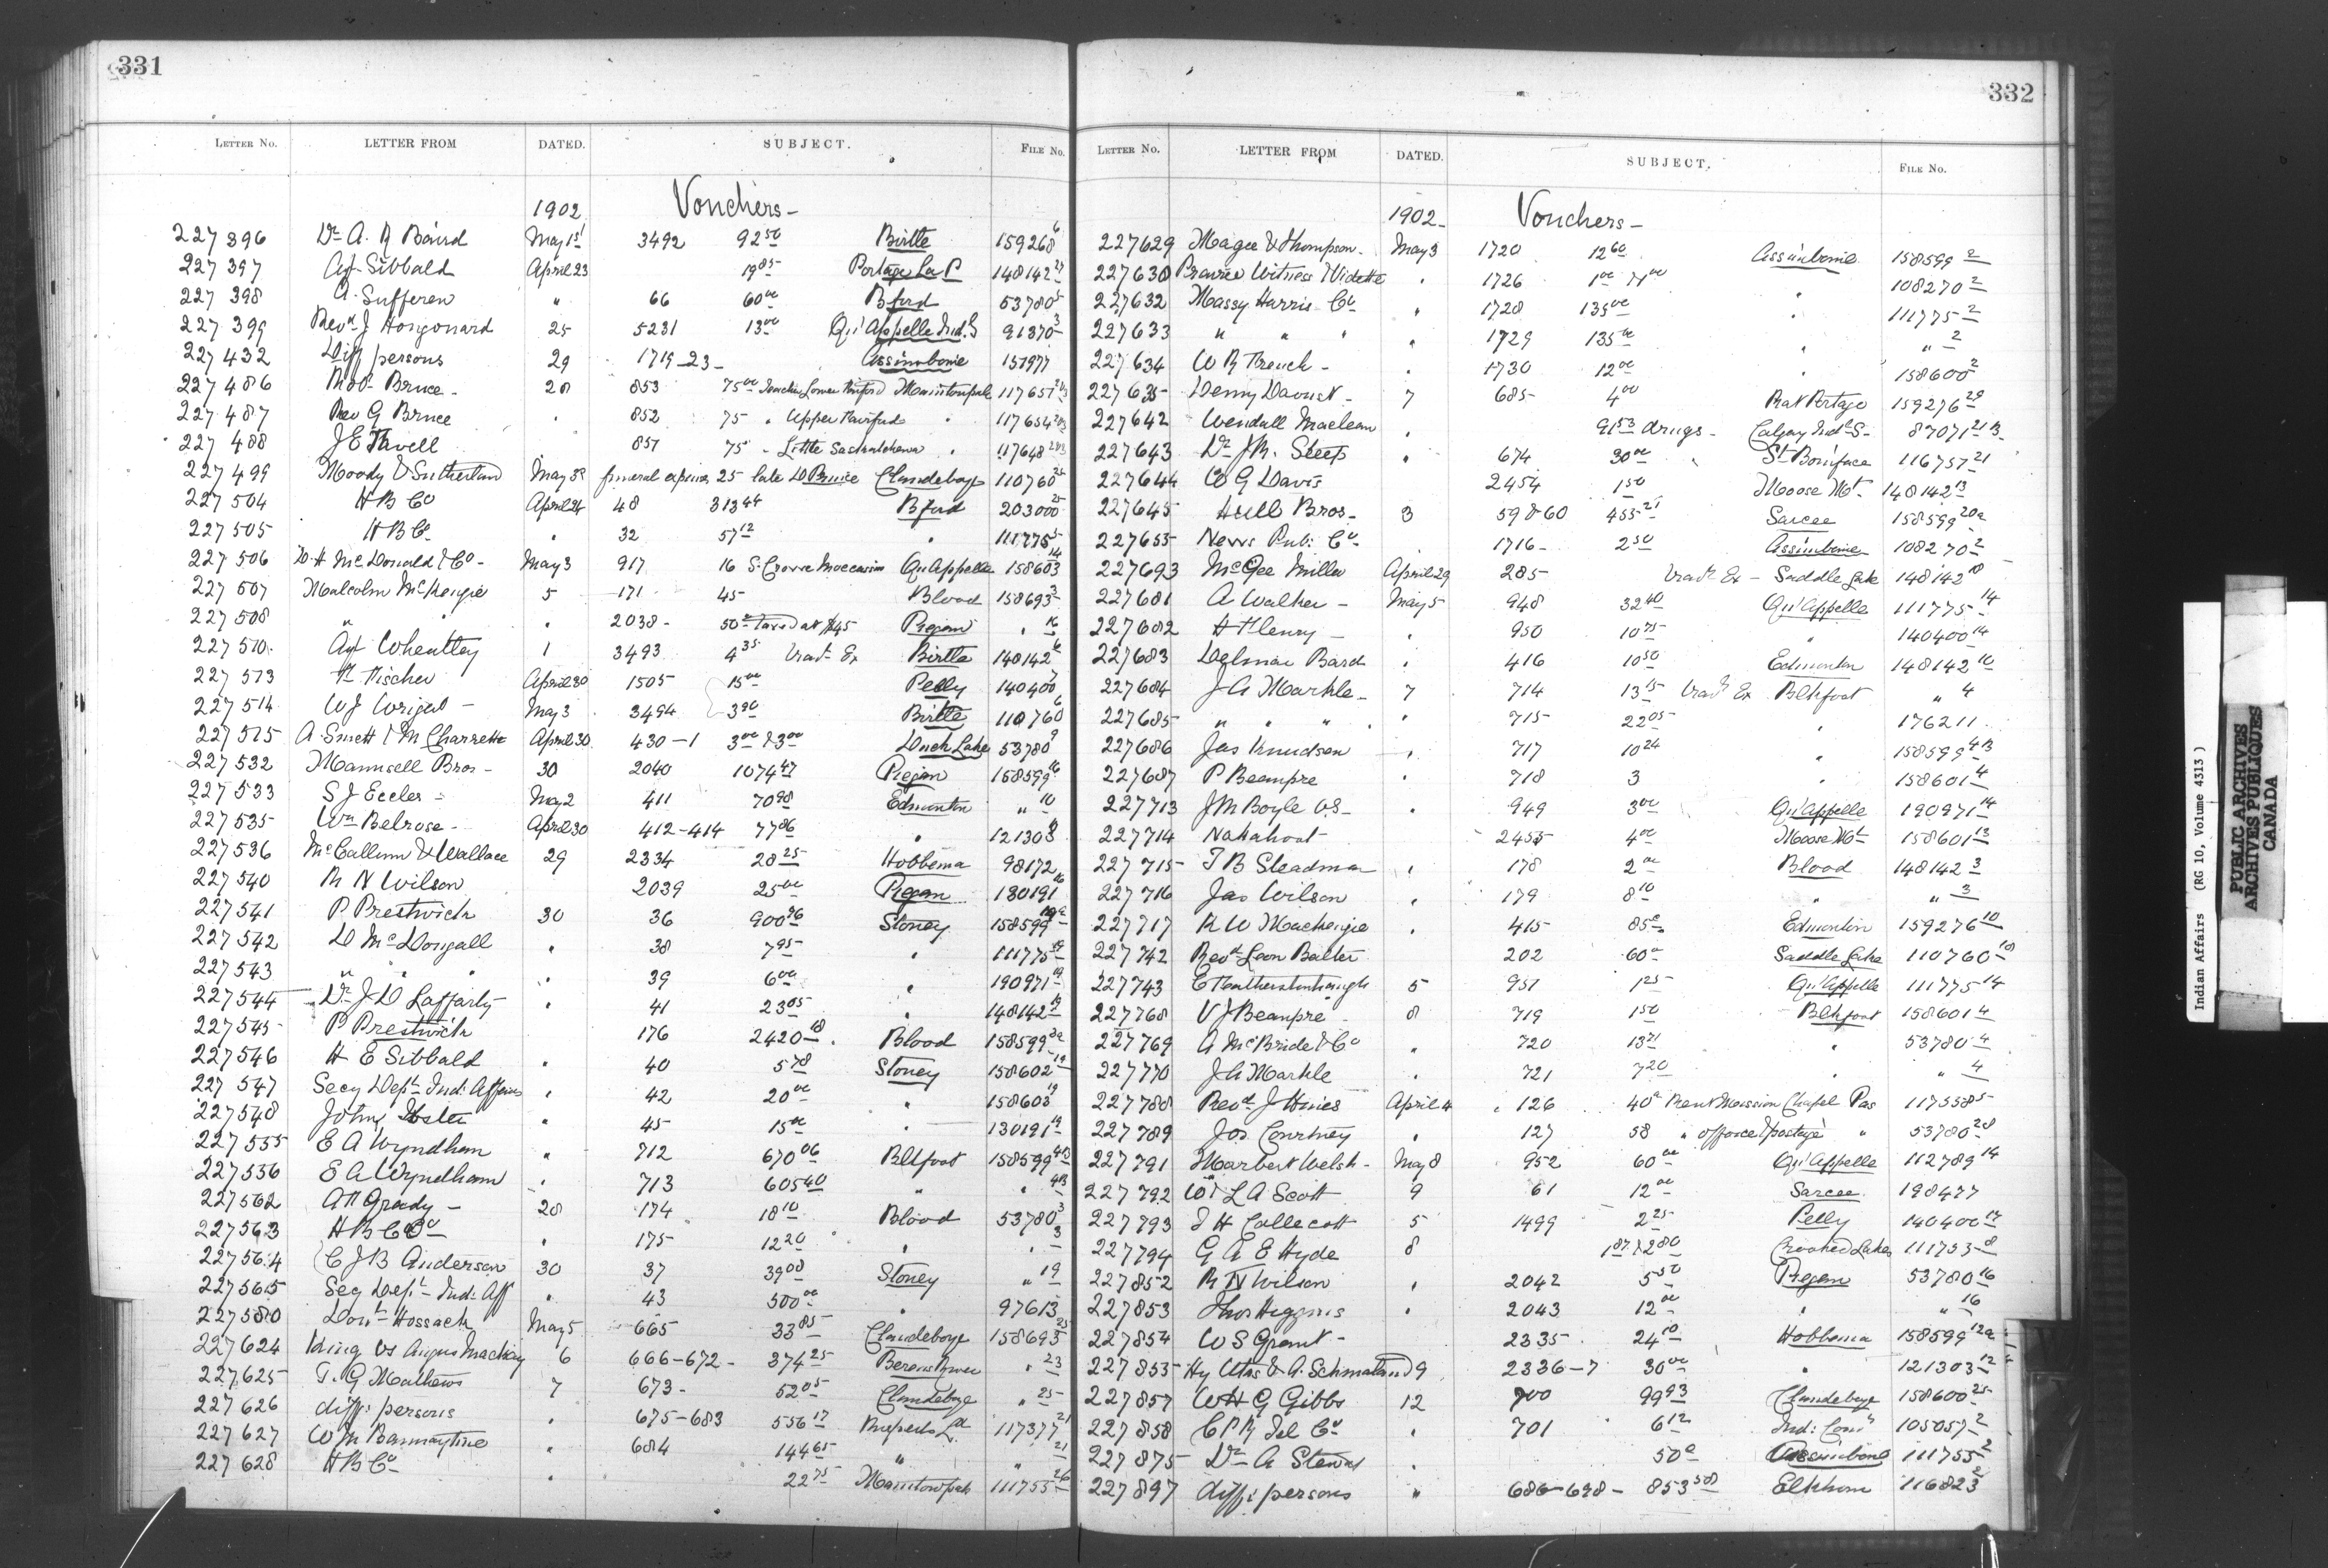 331
LETTER No. LETTER FROM DATED. SUBJECT. FILE No.
1902 Vouchers-
227396 Dr A. B Baird May 1st 3492 92 50 Birtle 159268 6
227397 Agt Sibbald April 23 19 85 Portage La P 148142 27
227398 A. Sufferen " 66 60 00 Bford 53780 5
227399 Revd J Hougonard 25 5231 13 00 Qu'Appelle Ind. S 91370 3
227432 Diff persons 29 1719-23- Assiniboine 151977
227486 Robt Bruce - 28 853 75 00 Teacher Lower Fairford Manitowpah 117657
227487 Rev G Bruce " 852 75 " Upper Fairford " 117654
227488 J E Favell 851 75 - Little Saskatchewan " 117648
227499 Moody & Sutherland May 3 funeral expenses 25 late D Prince Clandeboye 110760 25
227504 H B Co April 24 48 313 44 Bford 203000 25
227505 H B Co " 32 57 12 " 111775 5
227506 D. H McDonald & Co- May 3 917 16 Qu'Appelle 158603 14
227507 Malcolm McKenzie 5 171 45 Blood 158693 3
227508 " " 2038- 50 00 Taxed at $45 Piegan " 16
227510 Agt Wheatley 1 3493 4 35 Trav. Ex Birtle 148142 6
227513 H Fischer April 30 1505 15 00 Pelly 140400 7
227514 W J Wright - May 3 3494 3 90 Birtle 110760 6
227515 A Smett & M Charrette April 30 430-1 3 00 & 3 00 Duck Lake 53780 9
227532 Maunsell Bros - 30 2040 1074 47 Piegan 158599 16
227533 S J Eccles - May 2 411 70 98 Edmonton " 10
227535 Wm Belrose - April 30 412-414 77 86 " 121303
227536 McCallum & Wallace 29 2334 28 25 Hobbema 98172
227540 R N Wilson 2039 25 00 Piegan 130191 16
227541 P Prestwich 30 36 900 96 Stoney 158599 19a
227542 D McDougall " 38 7 95 " 111775 19
227543 " " " 39 6 00 " 190971 19
227544 Dr J D Lafferty " 41 23 05 " 148142 19
227545 P Prestwich 176 2420 18 Blood 158599 3a
227546 H E Sibbald " 40 5 78 Stoney 158602 19
227547 Secy Dept Ind: Affairs " 42 20 00 " 158603 19
227548 John " 45 15 00 " 130191 19
227555 E A Wyndham " 712 670 06 Blkfoot 158599 4B
227556 E A Wyndham " 713 605 40 " " 4B
227562 A H Grady - 28 174 18 10 Blood 53780 3
227563 H B Co " 175 12 20 " " 3
227564 C J B Anderson 30 37 39 08 Stoney " 19
227565 Secy Dept Ind: Aff " 43 500 00 " 97613
227580 Hossack May 5 665 33 85 Clandeboye 158693 25
227624 King vs Angus Mackay 6 666-672- 374 25 Berens River " 23
227625 T. G Mathews 7 673- 52 05 Clandeboye " 25
227626 diff: persons " 675-683 556 17 Ruperts Ld 117377 21
227627 W M Bannaytine " 684 144 65 " " 21
227628 H B Co " 22 75 Manitowpah 111755 26
332
LETTER No. LETTER FROM DATED. SUBJECT. FILE No.
1902- Vouchers-
227629 Magee & Thompson- May 3 1720 12 60 Assiniboine 158599 2
227630 Prairie Witness & Vidette " 1726 1 00 " 108270 2
227632 Massy Harris Co " 1728 135 00 " 111775 2
227633 " " " " 1729 135 00 " " 2
227634 W R French - " 1730 12 00 " 158600 2
227635 Henry Daoust - 7 685- 4 00 Rat Portage 159276 29
227642 Wendall Maclean " 91 53 drugs- Calgary Indl S- 87071
227643 Dr J R. Steep " 674 30 00 " St Boniface 116757 21
227644 W G Davis 2454 1 50 Moose Mt- 148142 13
227645 Hull Bros- 3 59 & 60 455 21 Sarcee 158599 20a
227655 News Pub: Co- 1716- 2 50 Assiniboine 108270 2
227693 McGee Miller April 29 285 Trav. Ex - Saddle Lake 148142 18
227681 A Walker - May 5 948 32 40 Qu'Appelle 111775 14
227682 H Henry - " 950 10 75 " 140400 14
227683 Delmar Bard " 416 10 50 Edmonton 148142 10
227684 J A Markle- 7 714 13 15 Trav. Ex Blkfoot " 4
227685 " " " " 715- 22 05 " 176211
227686 Jas Knudsen " 717 10 24 " 158599 4B
227687 P Beaupre " 718 3 " 158601 4
227713 J M Boyle V.S- " 949 3 00 Qu'Appelle 190971 14
227714 Nahahoot - " 2455 4 00 Moose Mt- 158601 13
227715 T B Steadman " 178 2 00 Blood 148142 3
227716 Jas Wilson " 179 8 10 " " 3
227717 K W Mackenzie " 415 85c Edmonton 159276 10
227742 Revd Leon Balter 202 60 00 Saddle Lake 110760 18
227743 E Featherstonhaugh 5 951 1 25 Qu'Appelle 111775 14
227768 V J Beaupre - 8 719 1 50 Blkfoot 158601 4
227769 A McBride & Co " 720 13 71 " 53780 4
227770 J A Markle " 721 7 20 " " 4
227788 Revd J Hines April 4 126 40 00 Rent Mission Chapel Pas 117558 5
227789 Jos Courtney " 127 58 " office & postage " 53780 28
227791 Marbert Welsh- May 8 952 60 00 Qu'Appelle 112789 14
227792 L A Scott 9 61 12 00 Sarcee 198477
227793 J H Callecott 5 1499 2 25 Pelly 140400 17
227794 G A E Hyde 8 1 87 & 2 80 Crooked Lakes 111753 8
227852 R N Wilson " 2042 5 50 Piegan 53780 16
227853 Thos Higgins " 2043 12 00 " " 16
227854 W S Grant - 2335 24 10 Hobbema 158599 12a
227855 Hy Utas & A. Schmatland 9 2336-7 30 00 " 121303 12
227857 W H G Gibbs 12 700 99 93 Clandeboye 158600 25
227858 C P Ry Tel Co " 701 6 12 Ind: Comr 105057 2
227875 Dr A Stewart " 50c Assiniboine 111755 2
227897 diff: persons " 686-698- 853 58 Elkhorn 116823
Indian Affairs (RG 10, Volume 4313 )
PUBLIC ARCHIVES
ARCHIVES PUBLIQUES
CANADA